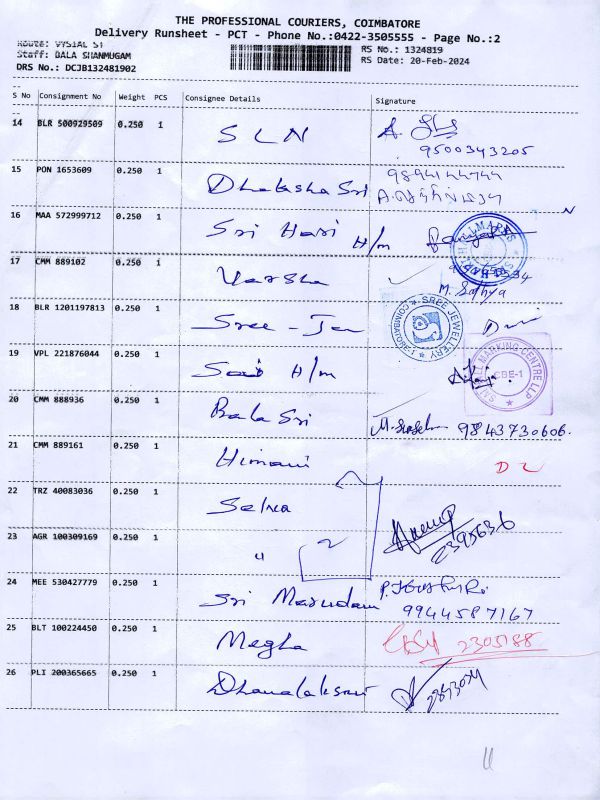 THE PROFESSIONAL COURIERS, COIMBATORE
Delivery Runsheet - PCT - Phone No.:0422-3505555 - Page No.:2
Route: VYSIAL ST
Staff: BALA SHANMUGAM
DRS No.: DCJB132481902
RS No.: 1324819
RS Date: 20-Feb-2024
S No Consignment No Weight PCS Consignee Details Signature
14 BLR 500929509 0.250 1 SLN A.
9500343205
15 PON 1653609 0.250 1 Dhaksha Sri 9894144744
16 MAA 572999712 0.250 1 Sri Hari H/m
17 CMM 889102 0.250 1 Varsha
M. Sathya
18 BLR 1201197813 0.250 1 Sree - Jew
SREE JEWELLERY
COIMBATORE-1
19 VPL 221876044 0.250 1 Sai H/m
SAI HALLMARKING CENTRE LLP
CBE-1
20 CMM 888936 0.250 1 Bala Sri 9843730606.
21 CMM 889161 0.250 1 Himani D2
22 TRZ 40083036 0.250 1 Selva
23 AGR 100309169 0.250 1 " 2 2395636
24 MEE 530427779 0.250 1 Sri Marudam
9944587167
25 BLT 100224450 0.250 1 Megha 2305188
26 PLI 200365665 0.250 1 Dhanalakshmi